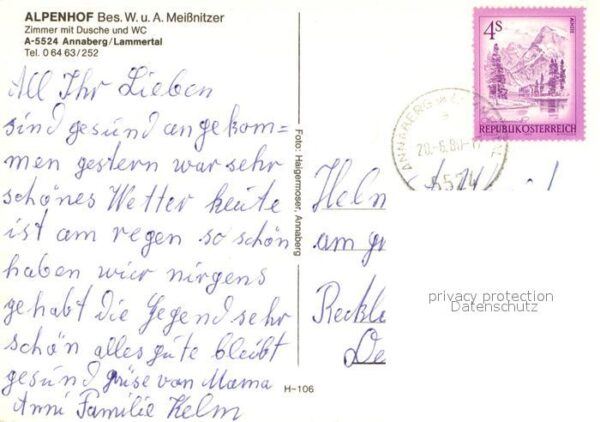 ALPENHOF Bes. W. u. A. Meißnitzer
Zimmer mit Dusche und WC
A-5524 Annaberg/Lammertal
Tel. 0 64 63/252
All Ihr Lieben
sind gesund angekom=
men gestern war sehr
schönes Wetter heute
ist am regen so schön
haben wier nirgens
gehabt die Gegend sehr
schön alles gute bleibt
gesund grüse van Mama
Anni Familie Kelm
Foto: Haigermoser, Annaberg
H-106
4S
REPUBLIK ÖSTERREICH
ANNABERG
5524
Helm
am gr
Reckl
De
privacy protection
Datenschutz